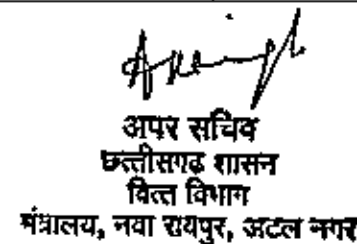 अपर सचिव
छत्तीसगढ़ शासन
वित्त विभाग
मंत्रालय, नवा रायपुर, अटल नगर